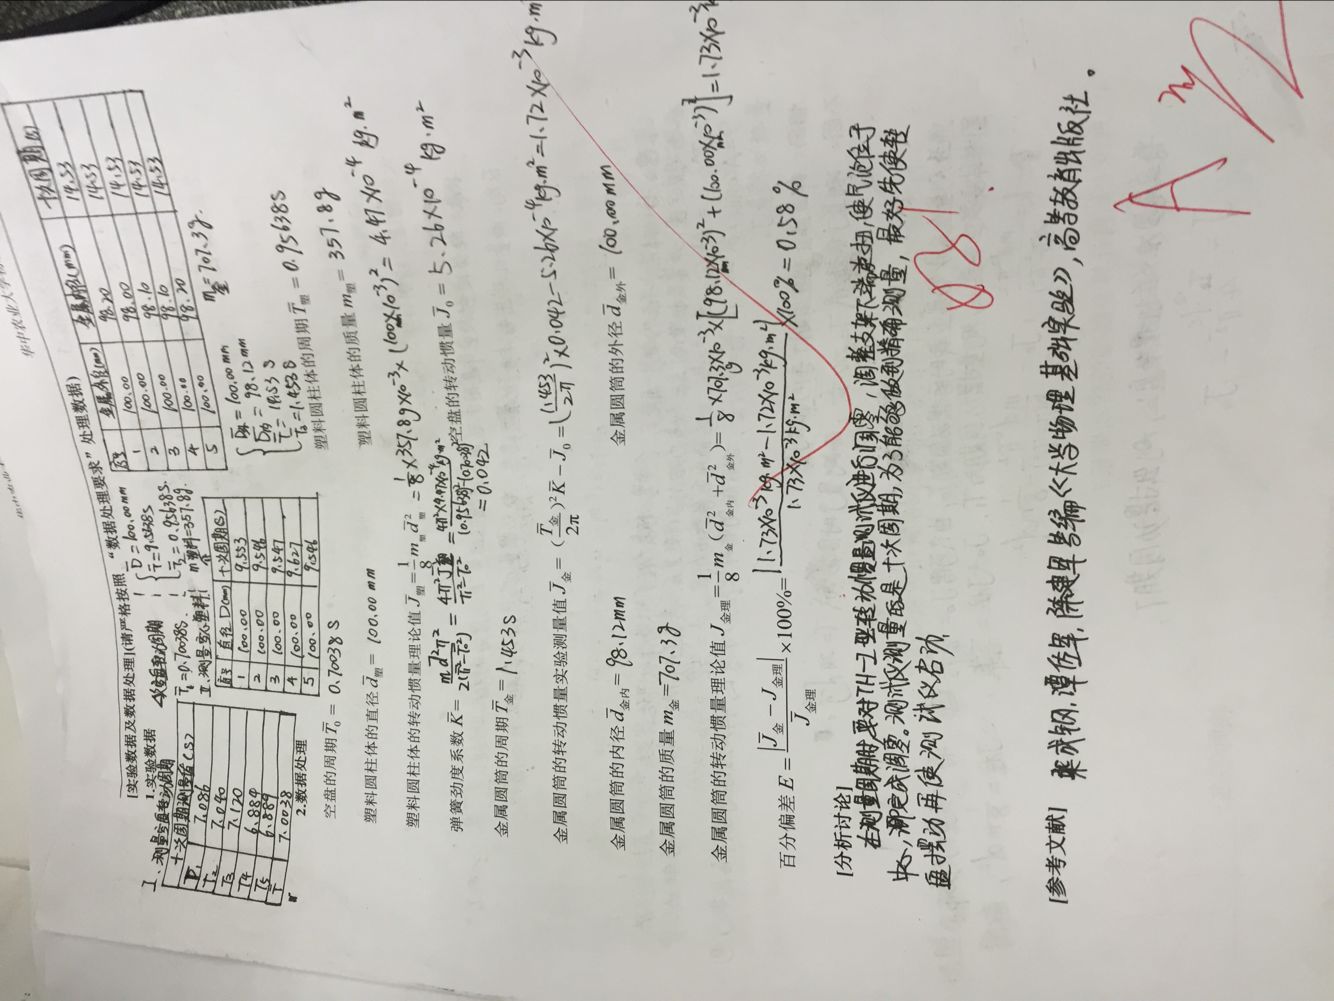 华中农业大学
[实验数据及数据处理](请严格按照“数据处理要求”处理数据)
1.实验数据
I. 测量空盘转动周期
十次周期测量值(S)
T₁ 7.086
T₂ 7.040
T₃ 7.120
T₄ 6.884
T₅ 6.889
T̄ 7.0038
空盘转动周期
T̄₀=0.70038S
D̄=100.00mm
T̄=9.5638S
T̄₂=0.95638S
m塑料=357.8g
II.测量实心塑料
序号 直径D(mm) 十次周期(S)
1 100.00 9.553
2 100.00 9.546
3 100.00 9.547
4 100.00 9.627
5 100.00 9.546
序号 金属外径(mm) 金属内径(mm) 十次周期(S)
1 100.00 98.20 14.53
2 100.00 98.00 14.53
3 100.00 98.10 14.53
4 100.00 98.10 14.53
5 100.00 98.20 14.53
m金=707.3g.
D̄外=100.00mm
D̄内=98.12mm
T̄=14.53 S
T̄₃=1.453 S
2.数据处理
空盘的周期T̄₀= 0.70038S 塑料圆柱体的周期T̄塑=0.95638S
塑料圆柱体的直径d̄塑= 100.00 mm 塑料圆柱体的质量m塑= 357.8g
塑料圆柱体的转动惯量理论值J̄塑=1/8 m塑d̄²塑 =1/8×357.8g×10⁻³×(100×10⁻³)²= 4.47×10⁻⁴ kg.m²
弹簧劲度系数K̄= md̄²π²/2(T̄₁²-T̄₀²) = 4π²J̄塑/T̄₁²-T̄₀² = 4π²×4.47×10⁻⁴kg·m²/(0.95638)²-(0.70038)² 空盘的转动惯量J̄₀=5.26×10⁻⁴kg·m²
=0.042
金属圆筒的周期T̄金=1.453S
金属圆筒的转动惯量实验测量值J̄金=(T̄金/2π)²K̄-J̄₀=(1.453/2π)²×0.042-5.26×10⁻⁴kg.m²=1.72×10⁻³kg.m
金属圆筒的内径d̄金内=98.12mm 金属圆筒的外径d̄金外= 100.00mm
金属圆筒的质量m金=707.3g
金属圆筒的转动惯量理论值J金理=1/8 m金(d̄²金内+d̄²金外)=1/8×707.3g×10⁻³×[(98.12×10⁻³)²+(100.00×10⁻³)²]=1.73×10⁻³
百分偏差E=|J̄金-J金理|/J̄金理×100%=|1.73×10⁻³kg.m²-1.72×10⁻³kg.m²|/1.73×10⁻³kg.m²×100%=0.58%
[分析讨论]
在测量周期时,要对TH-I型转动惯量测试仪进行调零,调整支架下端旋扭,使气泡位于
中心,即完成调零。测试仪测量的是十次周期,为了能够做到精确测量,最好先使转
盘摆动再使测试仪启动
好!
[参考文献] 陈建军等编《大学物理基础实验》,高等教育出版社。
A